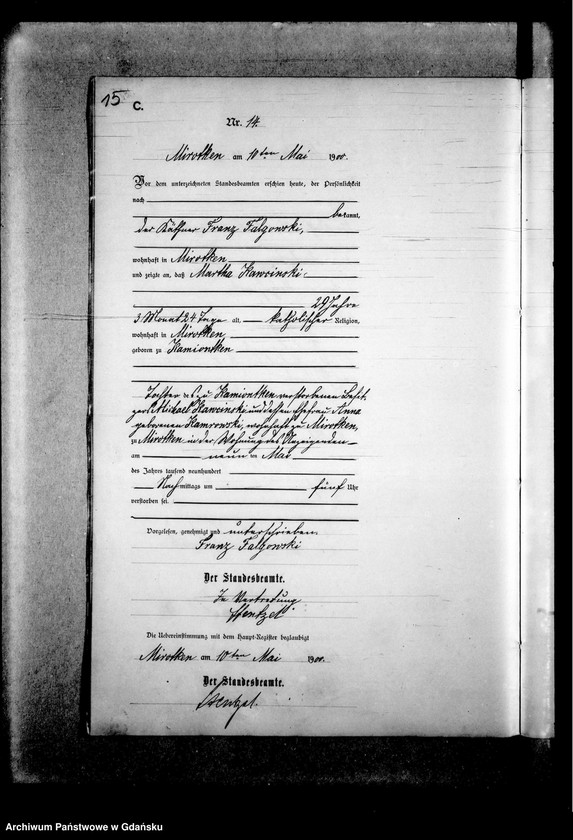 15 C.
Nr. 14.
Mirotken am 10ten Mai 1900.
Vor dem unterzeichneten Standesbeamten erschien heute, der Persönlichkeit
nach
bekannt,
der Käthner Franz Talgowski,
wohnhaft in Mirotken
und zeigte an, daß Martha Kawcinski,
29 Jahre
3 Monat 24 Tage alt, katholischer Religion,
wohnhaft in Mirotken,
geboren zu Kamiontken
Tochter des zu Kamiontken verstorbenen Besit-
zers Michael Kawcinski und dessen Ehefrau Anna
geborenen Kamrowski, wohnhaft zu Mirotken,
zu Mirotken in der Wohnung des Anzeigenden
am neunten Mai
des Jahres tausend neunhundert
Nachmittags um fünf Uhr
verstorben sei.
Vorgelesen, genehmigt und unterschrieben.
Franz Talgowski
Der Standesbeamte.
In Vertretung
Wentzel
Die Uebereinstimmung mit dem Haupt-Register beglaubigt
Mirotken am 10ten Mai 1900.
Der Standesbeamte.
Wentzel.
Archiwum Państwowe w Gdańsku